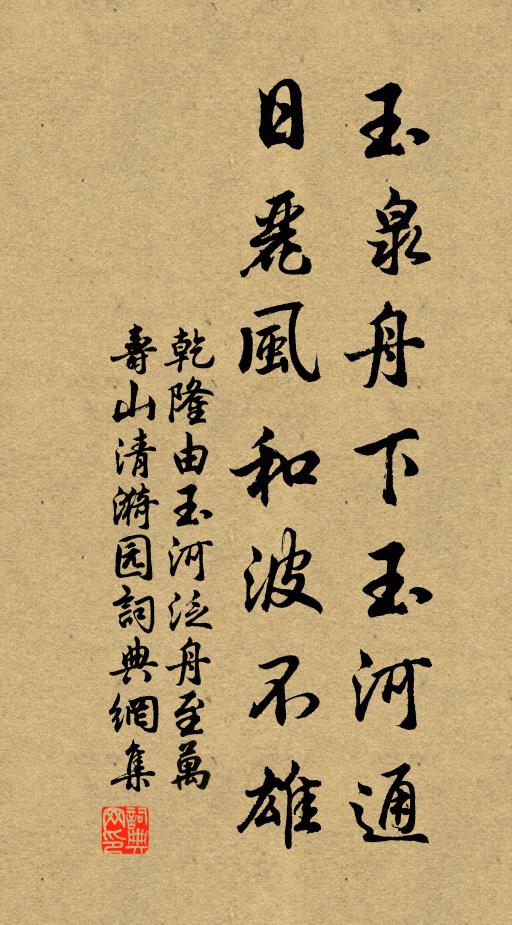 玉泉舟下玉河通
日麗風和波不雄
乾隆由玉河泛舟至萬
壽山清漪园詞典網集
詞典
网印